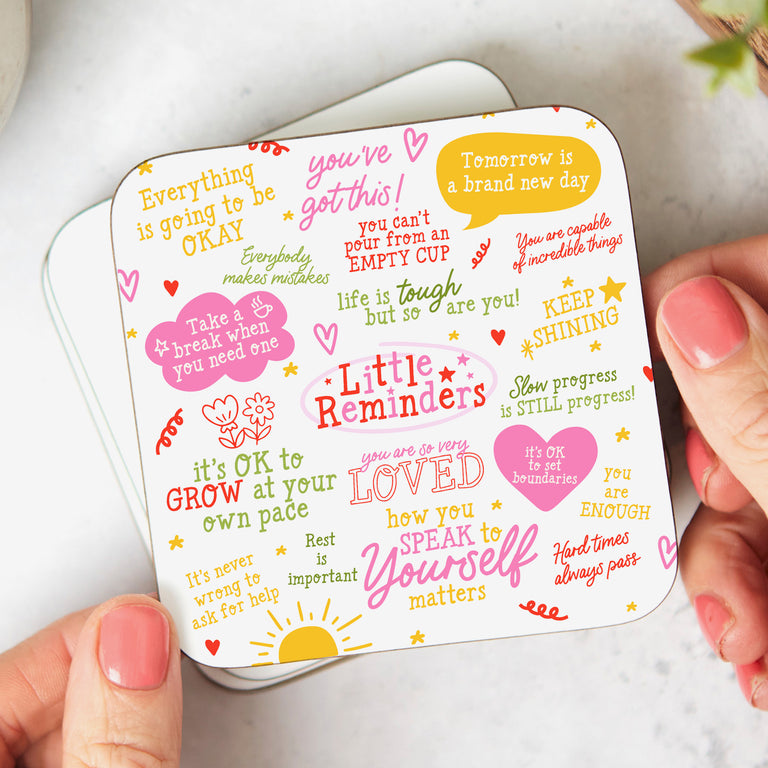 Everything
is going to be
OKAY
you've
got this!
Tomorrow is
a brand new day
you can't
pour from an
EMPTY CUP
You are capable
of incredible things
Everybody
makes mistakes
life is tough
but so are you!
KEEP
SHINING
Take a
break when
you need one
Little
Reminders
Slow progress
is STILL progress!
it's OK to
GROW at your
own pace
you are so very
LOVED
it's OK
to set
boundaries
you
are
ENOUGH
how you
SPEAK to
Yourself
matters
Rest
is
important
Hard times
always pass
It's never
wrong to
ask for help